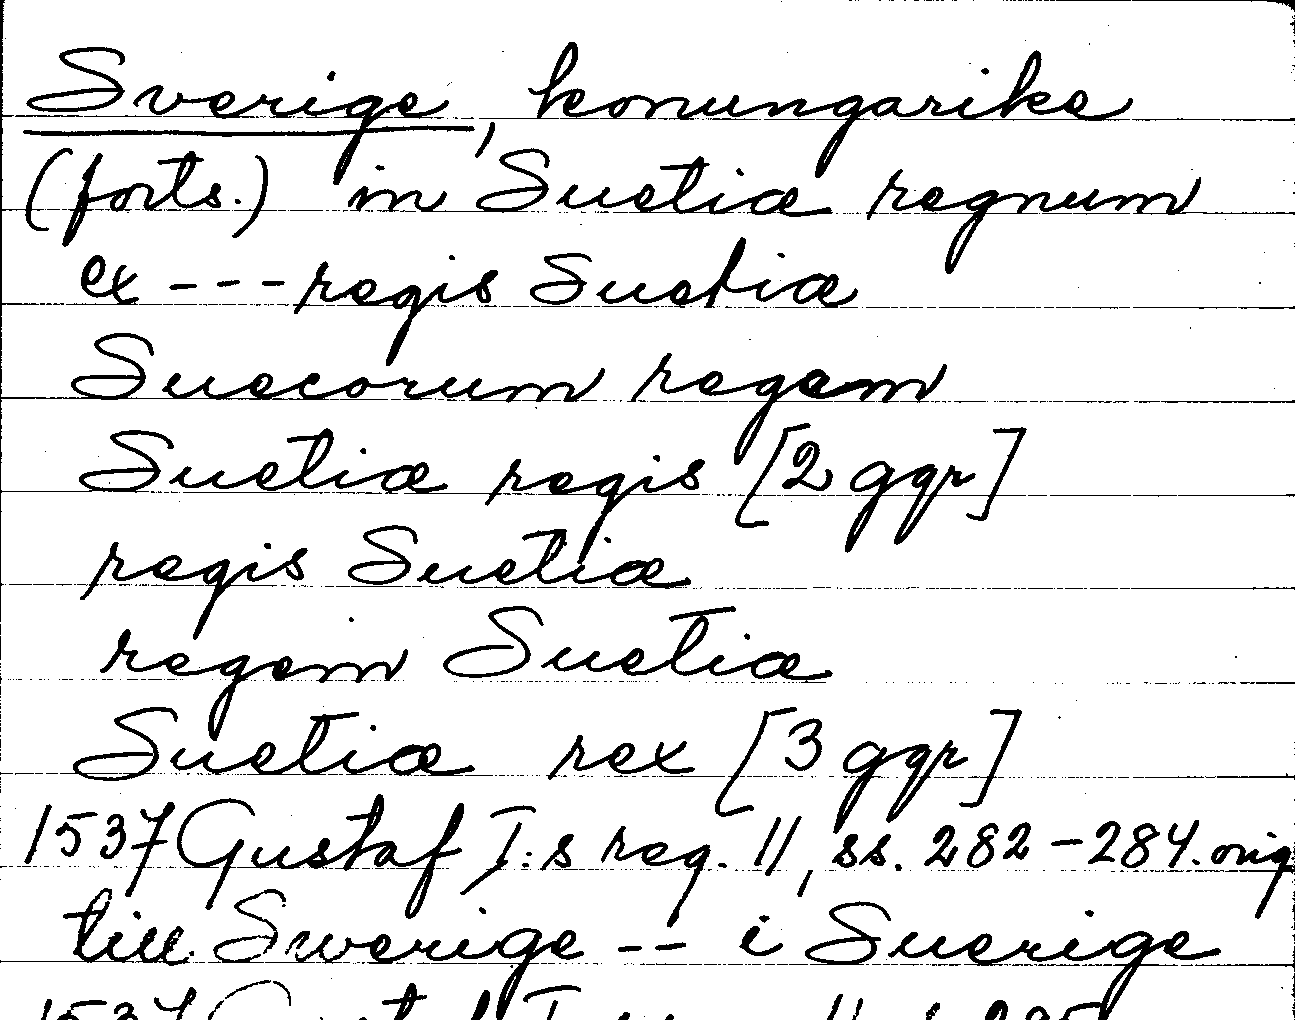 Sverige, konungarike
(forts.) in Suetiæ regnum
ex --- regis Suetiæ
Suecorum regem
Suetiæ regis [2 ggr]
regis Suetiæ
regem Suetiæ
Suetiæ rex [3 ggr]
1537 Gustaf I:s reg. 11, ss. 282-284. orig
till Swerige -- i Suerige
1537 Gustaf I:s